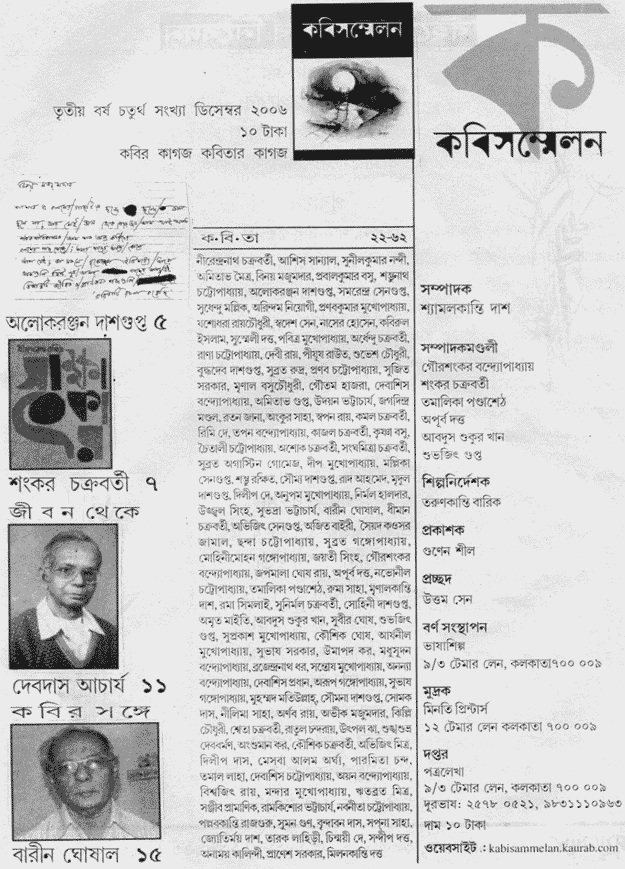 কবিসম্মেলন
তৃতীয় বর্ষ চতুর্থ সংখ্যা ডিসেম্বর ২০০৬
১০ টাকা
কবির কাগজ কবিতার কাগজ
ক
কবিসম্মেলন
অলোকরঞ্জন দাশগুপ্ত ৫
শংকর চক্রবর্তী ৭
জীবন থেকে
দেবদাস আচার্য ১১
কবির সঙ্গে
বারীন ঘোষাল ১৫
ক.বি.তা ২২-৬২
নীরেন্দ্রনাথ চক্রবর্তী, আশিস সান্যাল, সুনীলকুমার নন্দী,
অমিতাভ মৈত্র, বিনয় মজুমদার, প্রবালকুমার বসু, শম্ভুনাথ
চট্টোপাধ্যায়, অলোকরঞ্জন দাশগুপ্ত, সমরেন্দ্র সেনগুপ্ত,
সুধেন্দু মল্লিক, অরিন্দম নিয়োগী, প্রণবকুমার মুখোপাধ্যায়,
যশোধরা রায়চৌধুরী, স্বদেশ সেন, নাসের হোসেন, কবিরুল
ইসলাম, সুস্মেলী দত্ত, পবিত্র মুখোপাধ্যায়, অর্ধেন্দু চক্রবর্তী,
রাণা চট্টোপাধ্যায়, দেবী রায়, পীযূষ রাউত, শুভেশ চৌধুরী,
বুদ্ধদেব দাশগুপ্ত, সুব্রত রুদ্র, প্রণব চট্টোপাধ্যায়, সুজিত
সরকার, মৃণাল বসুচৌধুরী, গৌতম হাজরা, দেবাশিস
বন্দ্যোপাধ্যায়, অমিতাভ গুপ্ত, উদয়ন ভট্টাচার্য, জগদিন্দ্র
মণ্ডল, রতন জানা, অংকুর সাহা, স্বপন রায়, কমল চক্রবর্তী,
রিমি দে, তপন বন্দ্যোপাধ্যায়, কাজল চক্রবর্তী, কৃষ্ণা বসু,
চৈতালী চট্টোপাধ্যায়, অশোক চক্রবর্তী, সংঘমিত্রা চক্রবর্তী,
সুব্রত অগাস্টিন গোমেজ, দীপ মুখোপাধ্যায়, মল্লিকা
সেনগুপ্ত, শম্ভু রক্ষিত, সৌম্য দাশগুপ্ত, রাদ আহমেদ, মৃদুল
দাশগুপ্ত, দিলীপ দে, অনুপম মুখোপাধ্যায়, নির্মল হালদার,
উজ্জ্বল সিংহ, সুভদ্রা ভট্টাচার্য, বারীন ঘোষাল, ধীমান
চক্রবর্তী, অভিজিৎ সেনগুপ্ত, অজিত বাইরী, সৈয়দ কওসর
জামাল, ছন্দা চট্টোপাধ্যায়, সুব্রত গঙ্গোপাধ্যায়,
মোহিনীমোহন গঙ্গোপাধ্যায়, জয়তী সিংহ, গৌরশংকর
বন্দ্যোপাধ্যায়, জপমালা ঘোষ রায়, অপূর্ব দত্ত, নভোনীল
চট্টোপাধ্যায়, তমালিকা পণ্ডাশেঠ, রুমা সাহা, মৃণালকান্তি
দাশ, রমা সিমলাই, সুনির্মল চক্রবর্তী, সোহিনী দাশগুপ্ত,
অমৃত মাইতি, আবদুস শুকুর খান, সুবীর ঘোষ, শুভজিৎ
গুপ্ত, সুপ্রকাশ মুখোপাধ্যায়, কৌশিক ঘোষ, আর্যনীল
মুখোপাধ্যায়, সুভাষ সরকার, উমাপদ কর, মধুসূদন
বন্দ্যোপাধ্যায়, ব্রজেন্দ্রনাথ ধর, সন্তোষ মুখোপাধ্যায়, অনন্যা
বন্দ্যোপাধ্যায়, দেবাশিস প্রধান, অরূপ গঙ্গোপাধ্যায়, সুভাষ
গঙ্গোপাধ্যায়, মুহম্মদ মতিউল্লাহ্, সৌমনা দাশগুপ্ত, সোমক
দাস, নীলিমা সাহা, অর্ণব রায়, অভীক মজুমদার, ঝিল্লি
চৌধুরী, শ্বেতা চক্রবর্তী, রাতুল চন্দরায়, উৎপল ঝা, শুভ্রাশুভ্র
দেববর্মণ, অংশুমান কর, কৌশিক চক্রবর্তী, অভিজিৎ মিত্র,
দিলীপ দাস, মেসবা আলম অর্ঘ্য, পারমিতা চন্দ,
তমাল লাহা, দেবাশিস চট্টোপাধ্যায়, অয়ন বন্দ্যোপাধ্যায়,
বিশ্বজিৎ রায়, মন্দার মুখোপাধ্যায়, ঋতব্রত মিত্র,
সঞ্জীব প্রামাণিক, রামকিশোর ভট্টাচার্য, নবনীতা চট্টোপাধ্যায়,
পল্লবকান্তি রাজগুরু, সুমন গুণ, বৃন্দাবন দাস, সপ্‌না সাহা,
জ্যোতির্ময় দাশ, তারক লাহিড়ী, চিন্ময়ী দে, সন্দীপ দত্ত,
অনাময় কালিন্দী, প্রাণেশ সরকার, মিলনকান্তি দত্ত
সম্পাদক
শ্যামলকান্তি দাশ
সম্পাদকমণ্ডলী
গৌরশংকর বন্দ্যোপাধ্যায়
শংকর চক্রবর্তী
তমালিকা পণ্ডাশেঠ
অপূর্ব দত্ত
আবদুস শুকুর খান
শুভজিৎ গুপ্ত
শিল্পনির্দেশক
তরুণকান্তি বারিক
প্রকাশক
গুণেন শীল
প্রচ্ছদ
উত্তম সেন
বর্ণ সংস্থাপন
ভাষাশিল্প
৯/৩ টেমার লেন, কলকাতা৭০০ ০০৯
মুদ্রক
মিনতি প্রিন্টার্স
১২ টেমার লেন কলকাতা ৭০০ ০০৯
দপ্তর
পত্রলেখা
৯/৩ টেমার লেন, কলকাতা ৭০০ ০০৯
দূরভাষ: ২৫৭৮ ০৫২১, ৯৮৩১১১০৯৬৩
দাম ১০ টাকা
ওয়েবসাইট : kabisammelan.kaurab.com